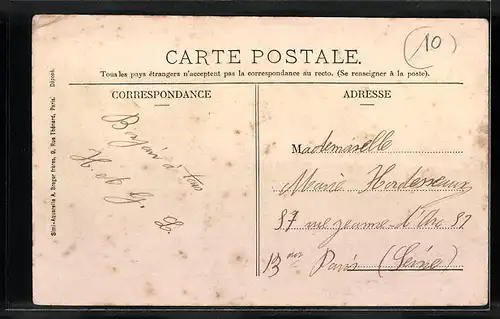 10
CARTE POSTALE.
Tous les pays étrangers n'acceptent pas la correspondance au recto. (Se renseigner à la poste).
CORRESPONDANCE
ADRESSE
Simi-Aquarelle A. Breger frères, 9, Rue Thénard, Paris. Déposé.
à tous
H. et G.
L.
Mademoiselle
Marie
37 rue jeanne-d'Arc 37
13me Paris (Seine)